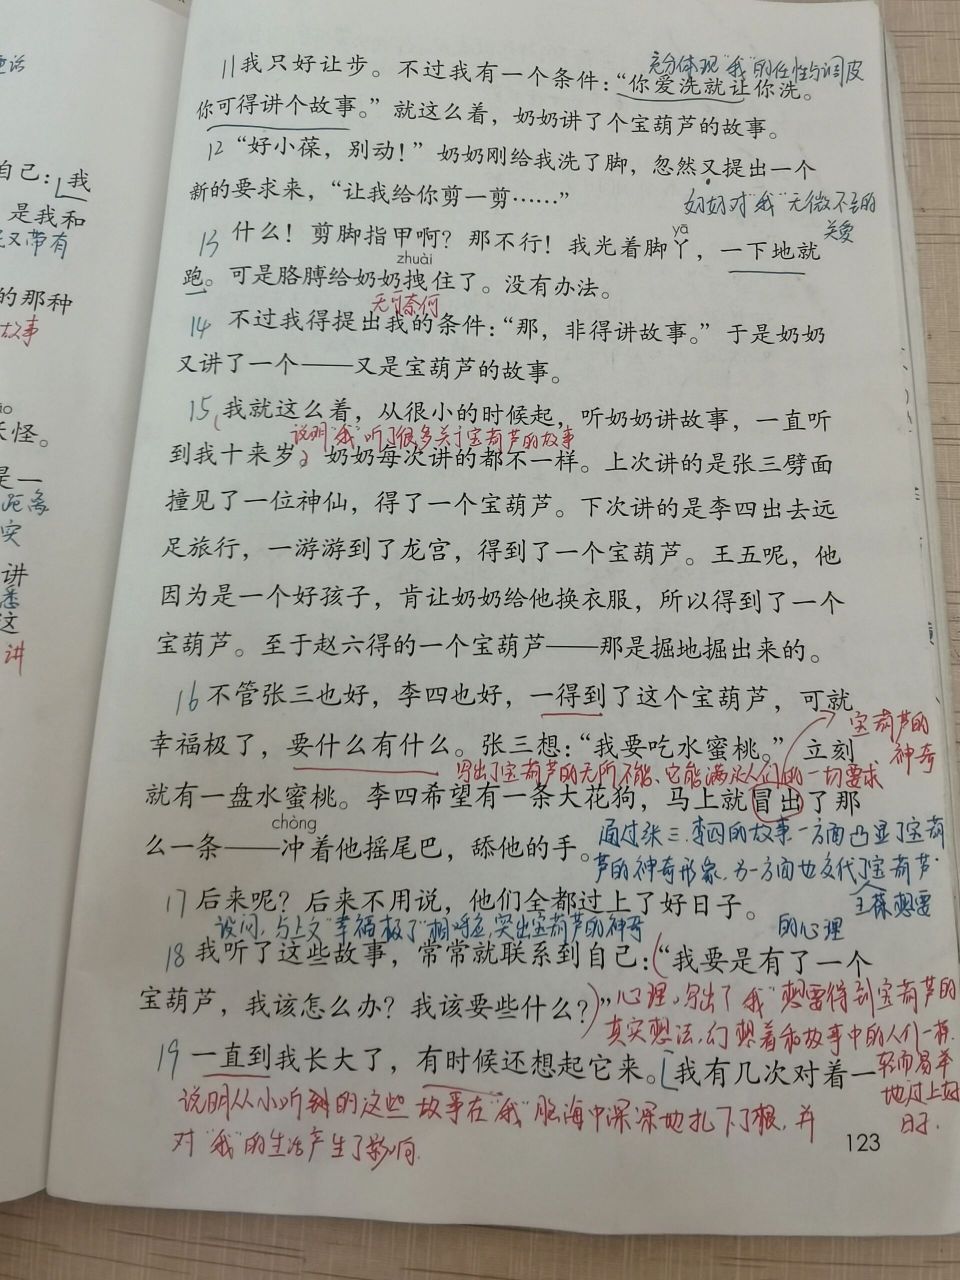 充分体现“我”的任性与调皮
11我只好让步。不过我有一个条件：“你爱洗就让你洗。
你可得讲个故事。”就这么着，奶奶讲了个宝葫芦的故事。
12“好小葆，别动！”奶奶刚给我洗了脚，忽然又提出一个
新的要求来，“让我给你剪一剪……”
奶奶对“我”无微不至的
关爱
yā
13什么！剪脚指甲啊？那不行！我光着脚丫，一下地就
zhuài
跑。可是胳膊给奶奶拽住了。没有办法。
无可奈何
14不过我得提出我的条件：“那，非得讲故事。”于是奶奶
又讲了一个——又是宝葫芦的故事。
15我就这么着，从很小的时候起，听奶奶讲故事，一直听
说明“我”听了很多关于宝葫芦的故事
到我十来岁。奶奶每次讲的都不一样。上次讲的是张三劈面
撞见了一位神仙，得了一个宝葫芦。下次讲的是李四出去远
足旅行，一游游到了龙宫，得到了一个宝葫芦。王五呢，他
因为是一个好孩子，肯让奶奶给他换衣服，所以得到了一个
宝葫芦。至于赵六得的一个宝葫芦——那是掘地掘出来的。
16不管张三也好，李四也好，一得到了这个宝葫芦，可就
宝葫芦的
神奇
幸福极了，要什么有什么。张三想：“我要吃水蜜桃。”立刻
写出了宝葫芦的无所不能、它能满足人们的一切要求
就有一盘水蜜桃。李四希望有一条大花狗，马上就冒出了那
chòng
么一条——冲着他摇尾巴，舔他的手。
通过张三、李四的故事一方面凸显了宝葫
芦的神奇形象，另一方面也交代了宝葫芦
王葆想要
的心理
17后来呢？后来不用说，他们全都过上了好日子。
设问，与上文“幸福极了”相呼应，突出宝葫芦的神奇
18我听了这些故事，常常就联系到自己：“我要是有了一个
宝葫芦，我该怎么办？我该要些什么？”
心理，写出了“我”想要得到宝葫芦的
真实想法，幻想着和故事中的人们一样
轻而易举
地过上好
日子.
19一直到我长大了，有时候还想起它来。我有几次对着一
说明从小听到的这些故事在“我”脑海中深深地扎下了根，并
对“我”的生活产生了影响.
123
自己：我
是我和
又带有
的那种
故事
怪。
是一
距离
实
讲
悉
这
讲